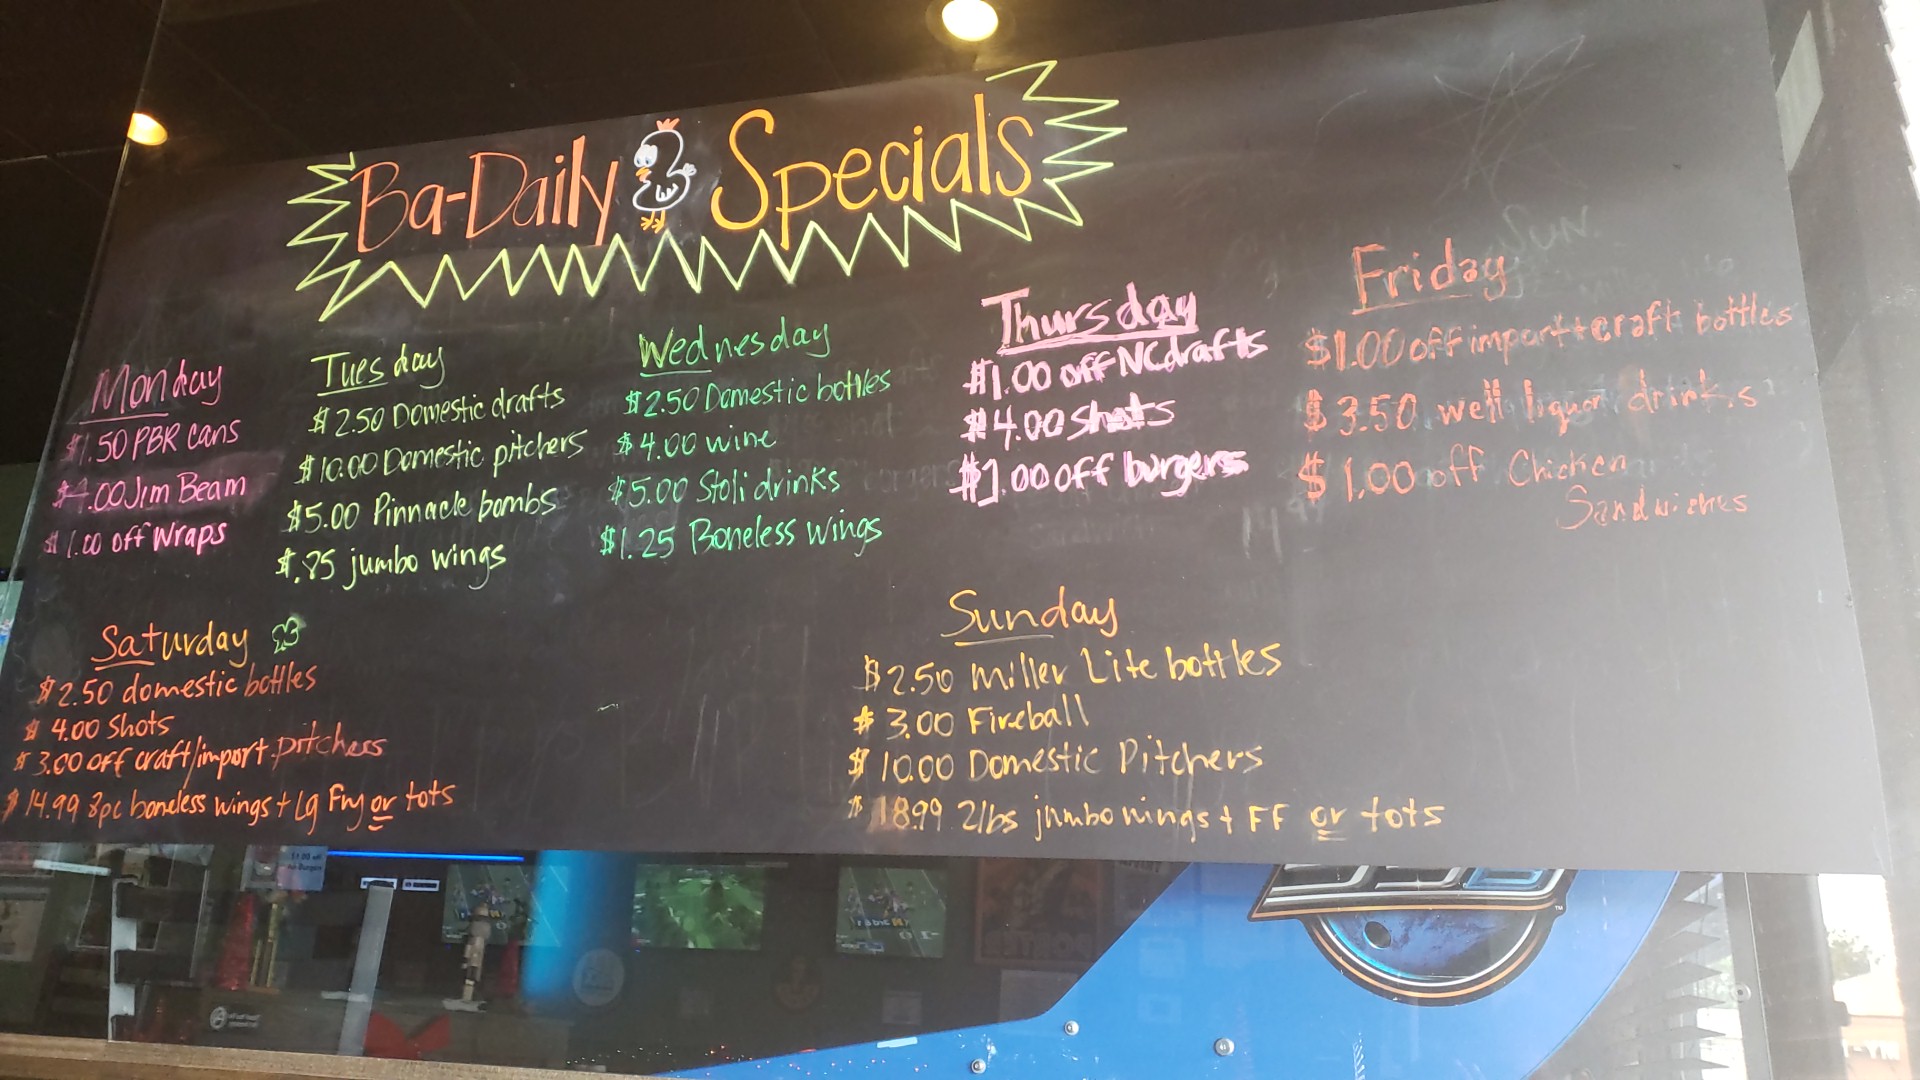 Ba-Daily Specials
Monday
$1.50 PBR cans
$4.00 Jim Beam
$1.00 off Wraps
Tuesday
$2.50 Domestic drafts
$10.00 Domestic pitchers
$5.00 Pinnacle bombs
$.85 jumbo wings
Wednesday
$2.50 Domestic bottles
$4.00 wine
$5.00 Stoli drinks
$1.25 Boneless wings
Thursday
$1.00 off NC drafts
$4.00 shots
$1.00 off burgers
Sun.
Friday
$1.00 off import + craft bottles
$3.50 well liquor drinks
$1.00 off Chicken
Sandwiches
Saturday
$2.50 domestic bottles
$4.00 Shots
$3.00 off craft/import pitchers
$14.99 8pc boneless wings + Lg Fry or tots
Sunday
$2.50 Miller Lite bottles
$3.00 Fireball
$10.00 Domestic Pitchers
$18.99 2lbs jumbo wings + FF or tots